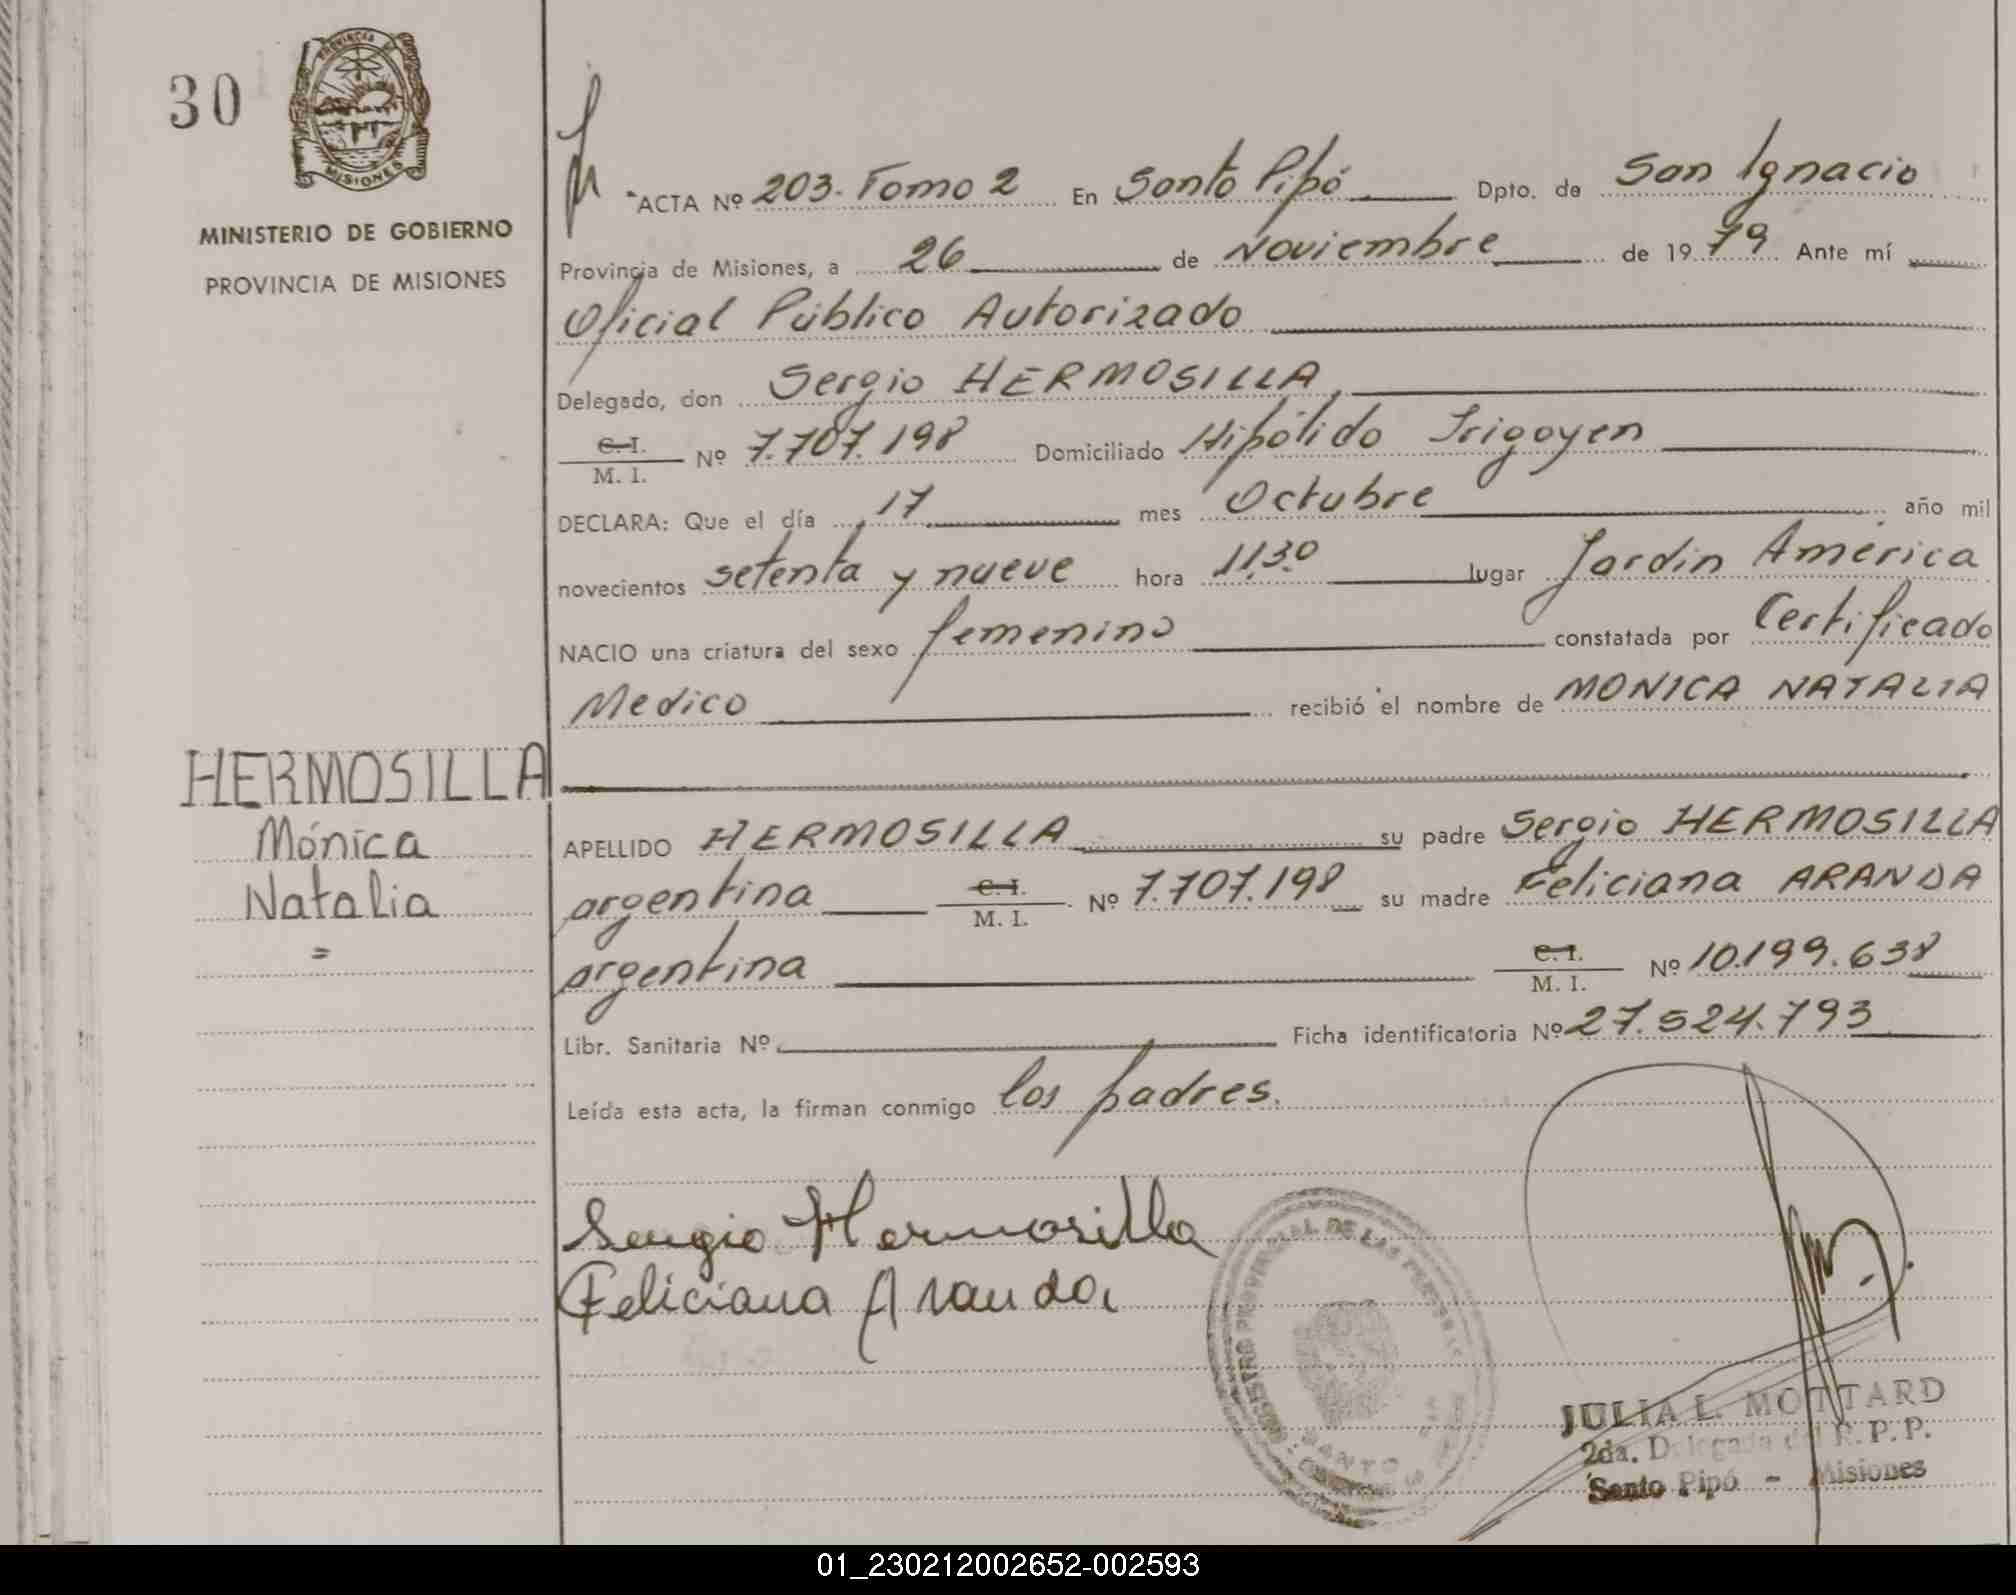 30
PROVINCIA DE
MISIONES
MINISTERIO DE GOBIERNO
PROVINCIA DE MISIONES
ACTA Nº 203. Tomo 2 En Santo Pipó Dpto. de San Ignacio
Provincia de Misiones, a 26 de Noviembre de 1979 Ante mí
Oficial Público Autorizado
Delegado, don Sergio HERMOSILLA
C. I.
M. I.
Nº 7.707.198 Domiciliado Hipólido Irigoyen
DECLARA: Que el día 17 mes Octubre año mil
novecientos setenta y nueve hora 11.30 lugar Jardin América
NACIO una criatura del sexo femenino constatada por Certificado
Medico recibió el nombre de MONICA NATALIA
HERMOSILLA
Mónica
Natalia
=
APELLIDO HERMOSILLA su padre Sergio HERMOSILLA
argentina C. I. M. I. Nº 7.707.198 su madre Feliciana ARANDA
argentina C. I. M. I. Nº 10.199.638
Libr. Sanitaria Nº Ficha identificatoria Nº 27.524.793
Leída esta acta, la firman conmigo los padres.
Sergio Hermosilla
Feliciana Aranda
PROVINCIAL DE LAS
SANTO
JULIA L. MOTTARD
2da. Delegada del R.P.P.
Santo Pipó - Misiones
01_230212002652-002593